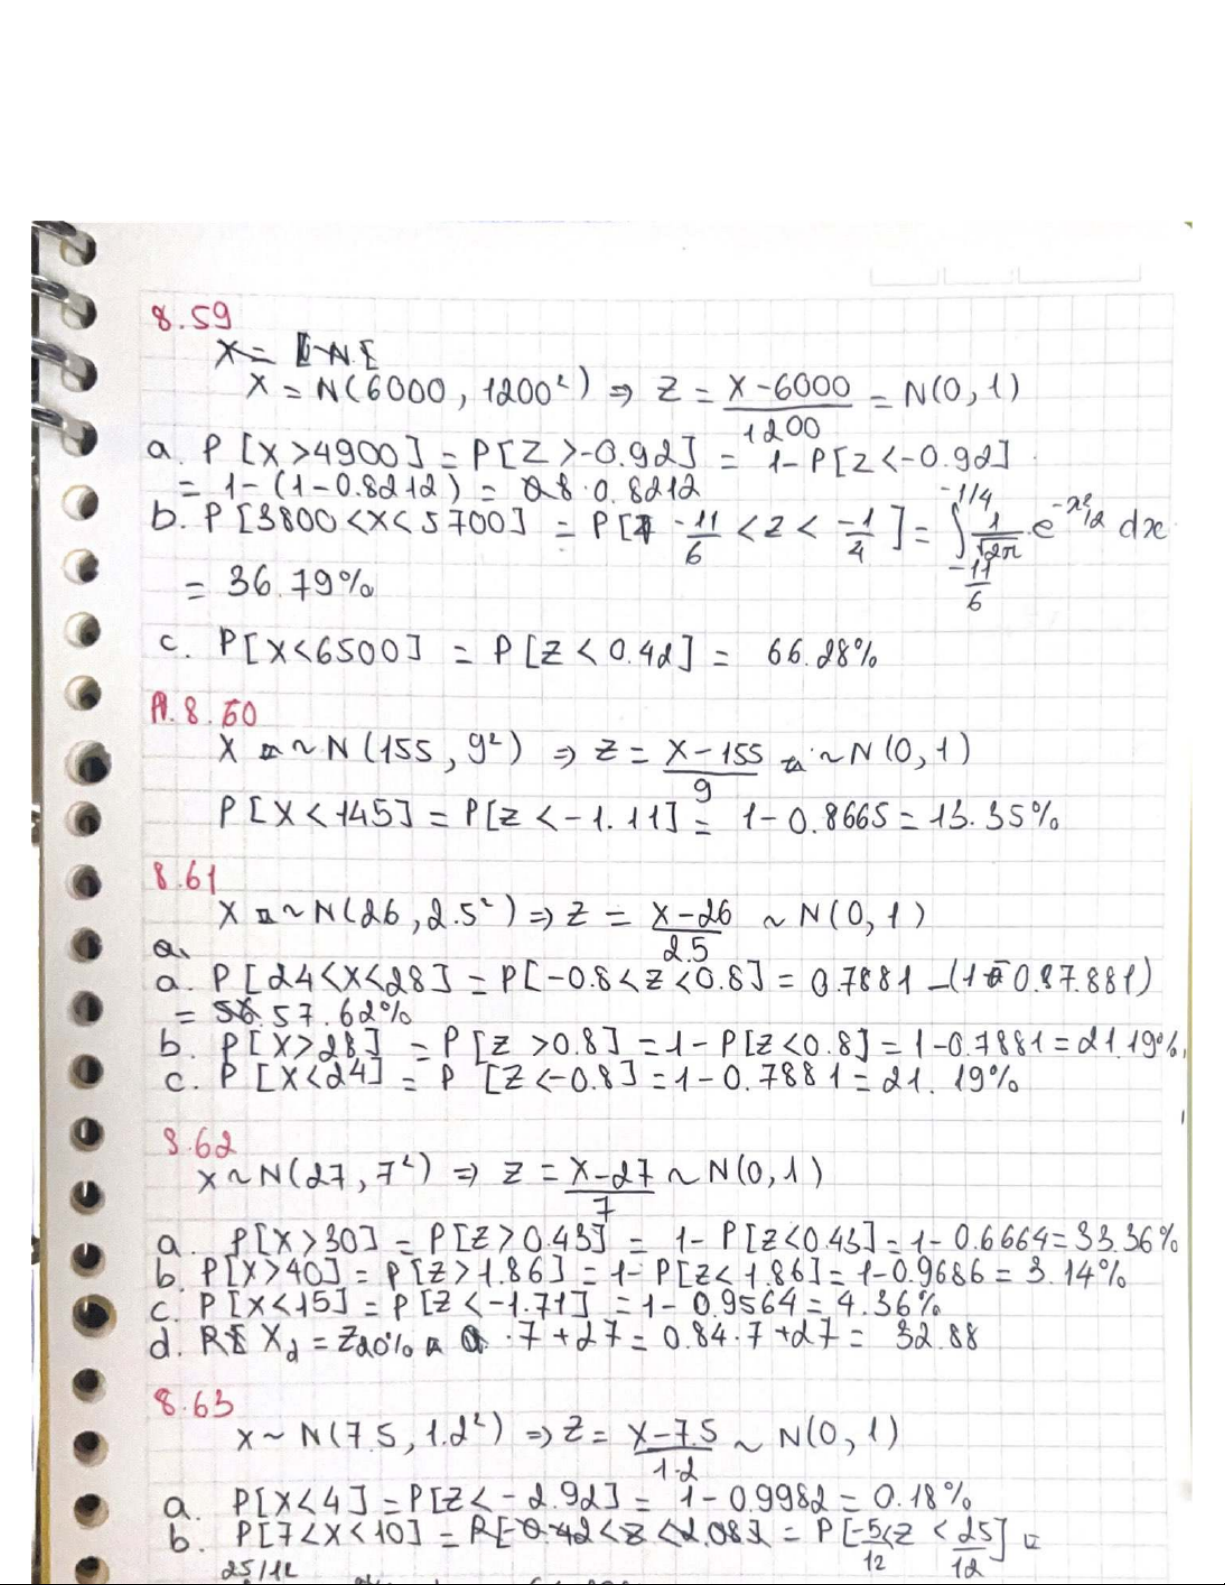 8.59
X =
X = N(6000, 1200²) ⇒ Z = (X - 6000)/1200 = N(0, 1)
a. P[X > 4900] = P[Z > -0.92] = 1 - P[Z < -0.92]
= 1 - (1 - 0.8212) = 0.8212
b. P[3800 < X < 5700] = P[-11/6 < Z < -1/4] = ∫_{-11/6}^{-1/4} 1/√2π · e^{-x²/2} dx
= 36.79%
c. P[X < 6500] = P[Z < 0.42] = 66.28%
8.60
X ~ N(155, 9²) ⇒ Z = (X - 155)/9 ~ N(0, 1)
P[X < 145] = P[Z < -1.11] = 1 - 0.8665 = 13.35%
8.61
X ~ N(26, 2.5²) ⇒ Z = (X - 26)/2.5 ~ N(0, 1)
a.
a. P[24 < X < 28] = P[-0.8 < Z < 0.8] = 0.7881 - (1 - 0.7881)
= 57.62%
b. P[X > 28] = P[Z > 0.8] = 1 - P[Z < 0.8] = 1 - 0.7881 = 21.19%
c. P[X < 24] = P[Z < -0.8] = 1 - 0.7881 = 21.19%
8.62
X ~ N(27, 7²) ⇒ Z = (X - 27)/7 ~ N(0, 1)
a. P[X > 30] = P[Z > 0.43] = 1 - P[Z < 0.43] = 1 - 0.6664 = 33.36%
b. P[X > 40] = P[Z > 1.86] = 1 - P[Z < 1.86] = 1 - 0.9686 = 3.14%
c. P[X < 15] = P[Z < -1.71] = 1 - 0.9564 = 4.36%
d. X₂ = Z20% · 7 + 27 = 0.84 · 7 + 27 = 32.88
8.63
X ~ N(7.5, 1.2²) ⇒ Z = (X - 7.5)/1.2 ~ N(0, 1)
a. P[X < 4] = P[Z < -2.92] = 1 - 0.9982 = 0.18%
b. P[7 < X < 10] = P[-0.42 < Z < 2.08] = P[-5/12 < Z < 25/12] =
25/12